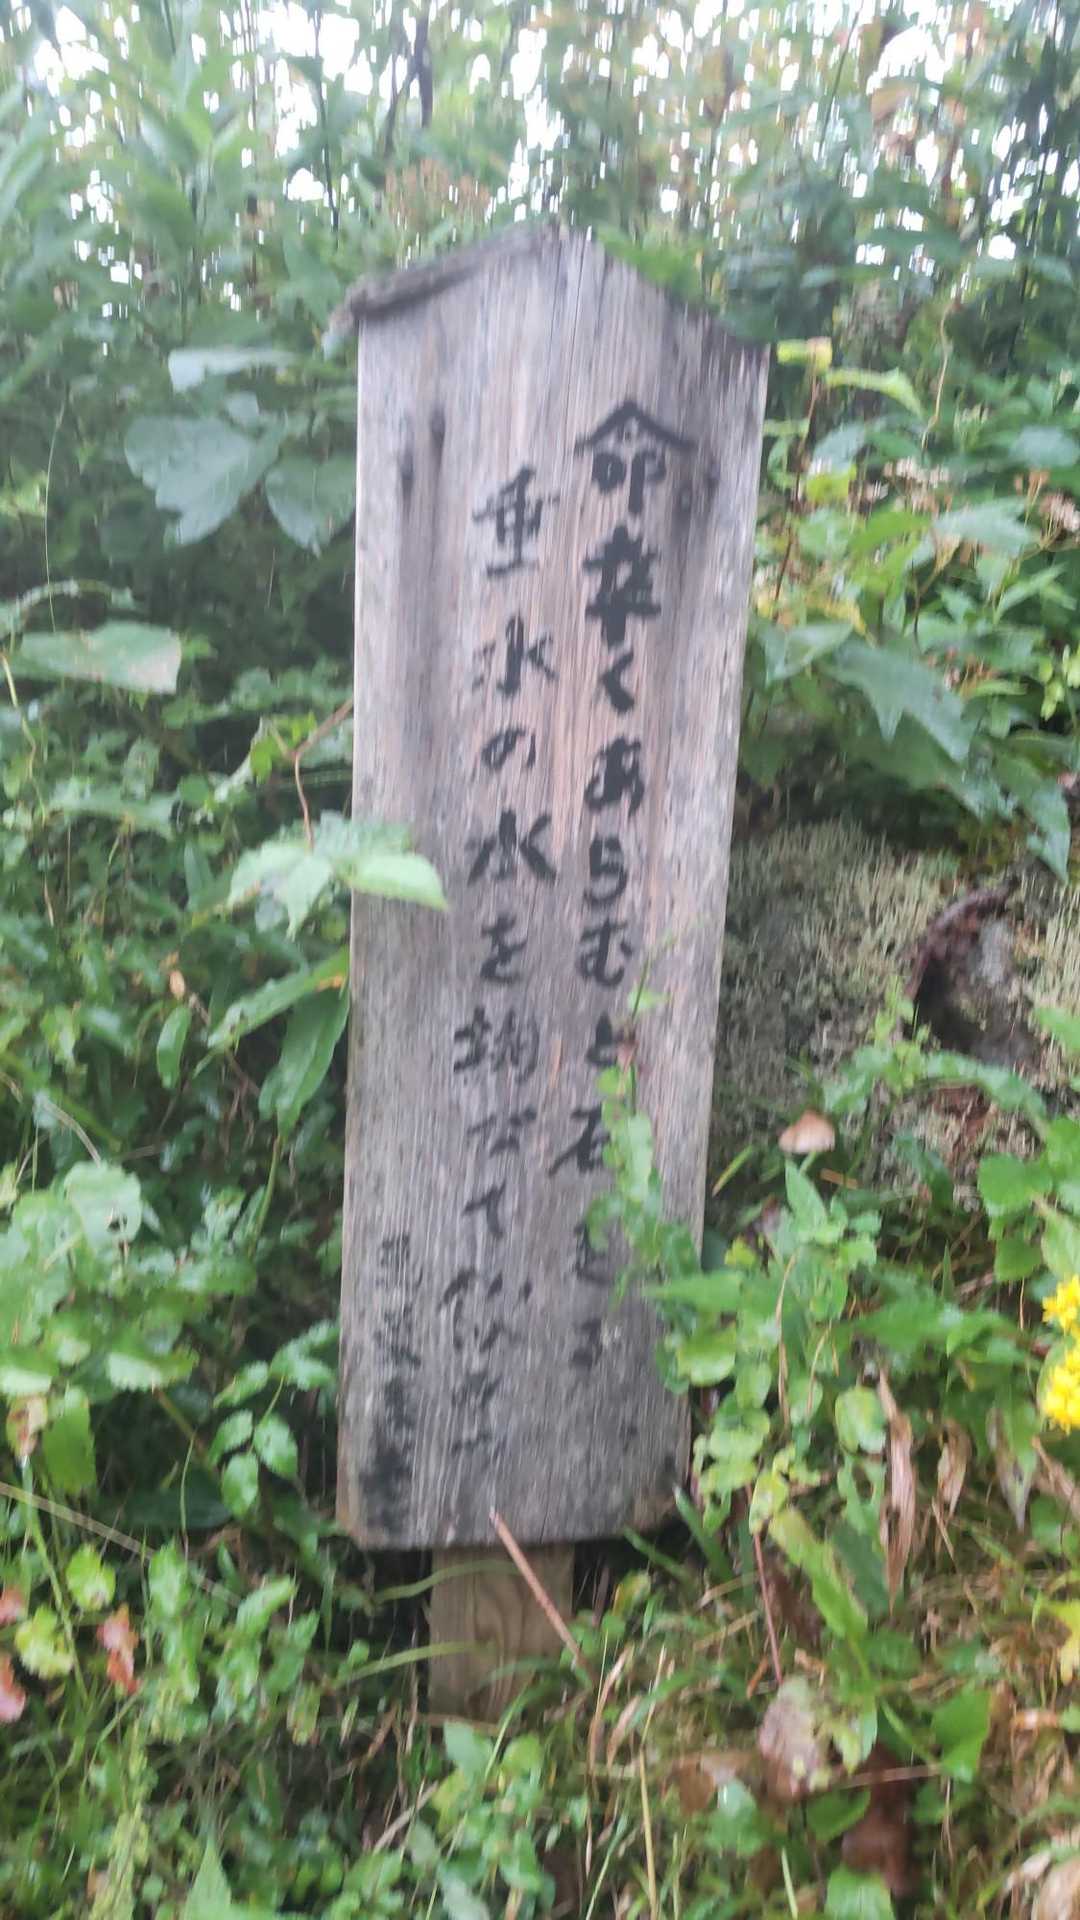 命幸くあらむと石走る
垂水の水を掬びて飲みつ